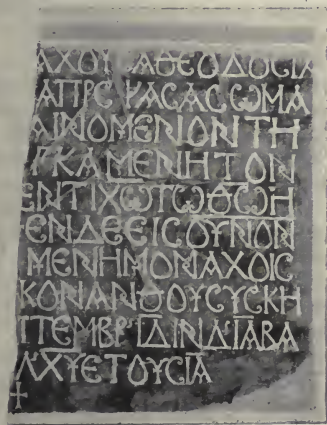 ΑΧΟΥ ΑΘΕΟΔΟCΙΑ
ΑΠΡΕΨΑCΑCCΩΜΑ
ΑΙΝΟΜΕΝΟΝΤΗ
ΚΑΜΕΝΗΤΟΝ
ΕΝΤΙΧΩΤΩΘΩΗ
ΕΝΔΕΕΙCΟΥΝΟΝ
ΜΕΝΗΜΟΝΑΧΟΙC
ΚΟΝΑΝΘΟΥCΥCΚΗ
ΠΤΕΜΒΡΙΔΙΝΔΙΑΒΑ
ΧΥΕΤΟΥCΙΑ
+